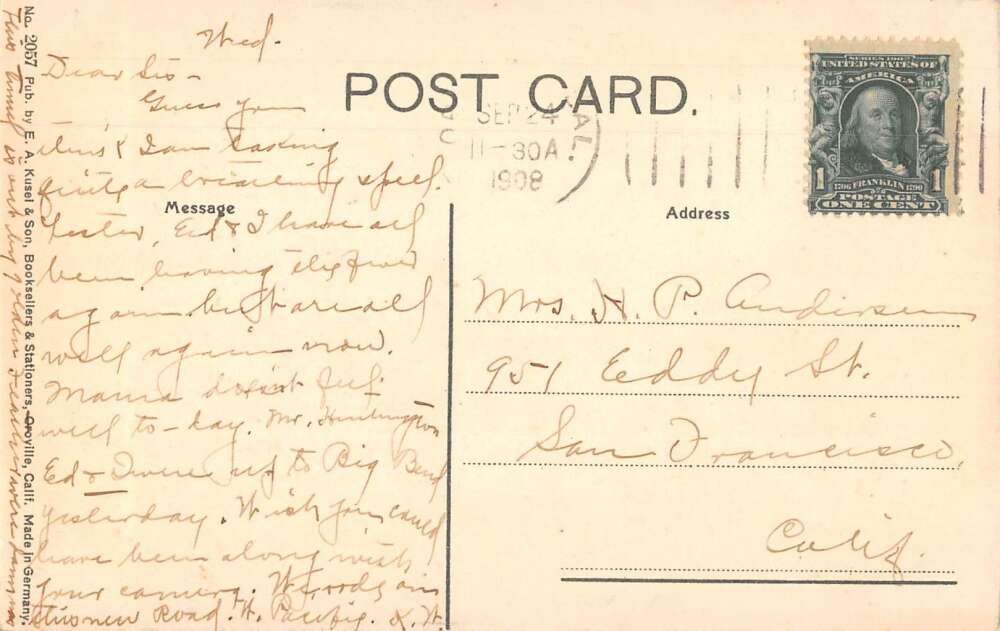 Wed.
Dear Sis -
Guess you
& I am taking
quite a spell.
Lester, Ed & I have all
been having
again but are all
well again now.
Mama doesn't feel
well to-day. Mr. Huntington
Ed & I were up to Big Bend
yesterday. Wish you could
have been along with
your camera. Woods on
this new Road. W. Pacific.
This tunnel is
POST CARD.
SEP 24
11-30A.
1908
CAL.
Message
Address
SERIES 1902
UNITED STATES OF
AMERICA
1706 FRANKLIN 1790
1 1
POSTAGE
ONE CENT
Mrs. H. P. Andersen
951 Eddy St.
San Francisco,
Calif.
No. 2057 Pub. by E. A. Kusel & Son, Booksellers & Stationers, Oroville, Calif. Made in Germany.